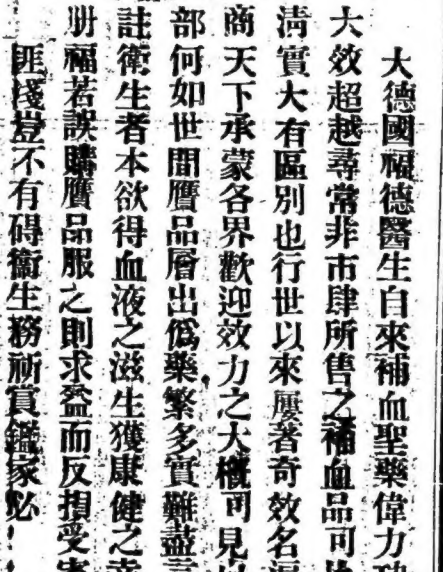 大德國福德醫生白來補血聖藥偉力
大效超越尋常非市肆所售之補血品可
淸實大有區別也行世以來屢著奇效名
商天下承蒙各界歡迎效力之大槪可見
部何如世間贋品層出僞藥繁多實難盡言
註衛生者本欲得血液之滋生獲康健之幸
册福若誤購贋品服之則求益而反損受害
匪淺豈不有碍衛生務祈賞鑑家必